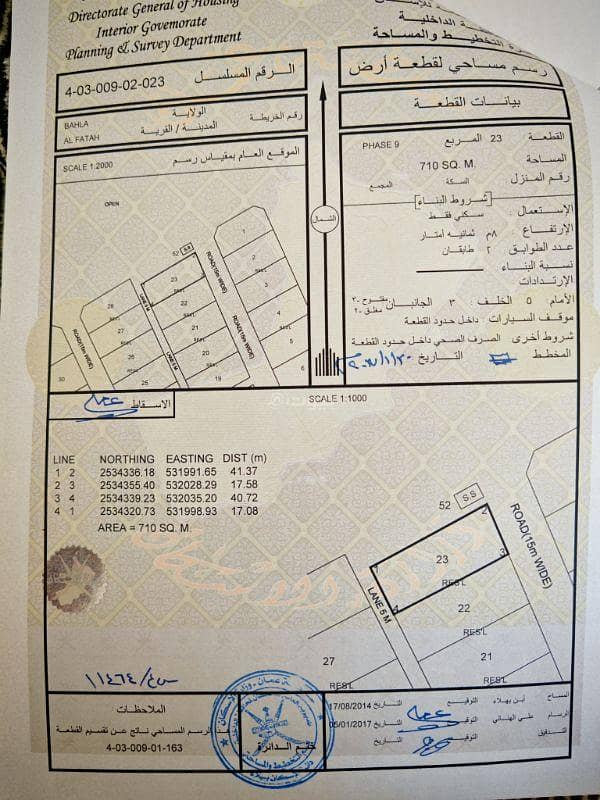 Directorate General of Housing
Interior Governorate
Planning & Survey Department
الداخلية
التخطيط والمساحة
4-03-009-02-023
الرقم المسلسل
رسم مساحي لقطعة أرض
BAHLA
AL FATAH
الولاية
المدينة / القرية
رقم الخريطة
بيانات القطعة
SCALE 1:2000
الموقع العام بمقياس رسم
القطعة : 23 المربع PHASE 9
المساحة 710 SQ. M.
رقم المنزل السكة المجمع
شروط البناء
الإستعمال : سكني فقط
الإرتفاع : ٨م ثمانية أمتار
عدد الطوابق : ٢ طابقان
نسبة البناء :
الإرتدادات
الأمام : ٥ الخلف ٣ الجانبان مفتوح ٣٠ مغلق ٢٠
موقف السيارات : داخل حدود القطعة
شروط أخرى الصرف الصحي داخل حدود القطعة
المخطط التاريخ
الشمال
OPEN
52 S.S
ROAD(15m WIDE)
ROAD(15m WIDE)
ROAD(15m WIDE)
LANE 5 M
LANE 5 M
1
2
3
4
5
23
22
21
20
19
28
27
26
25
30
RES'L
الاسقاط
SCALE 1:1000
LINE NORTHING EASTING DIST (m)
1 2 2534336.18 531991.65 41.37
2 3 2534355.40 532028.29 17.58
3 4 2534339.23 532035.20 40.72
4 1 2534320.73 531998.93 17.08
AREA = 710 SQ. M.
52 S.S
ROAD(15m WIDE)
LANE 5 M
1
2
3
4
23
RES'L
22
RES'L
21
RES'L
27
RES'L
١١٤٦٤
الملاحظات
الرسم المساحي ناتج عن تقسيم القطعة
4-03-009-01-163
ختم الدائرة
المساح التوقيع التاريخ 17/08/2014
الرسام التوقيع التاريخ 05/01/2017
التدقيق التوقيع التاريخ